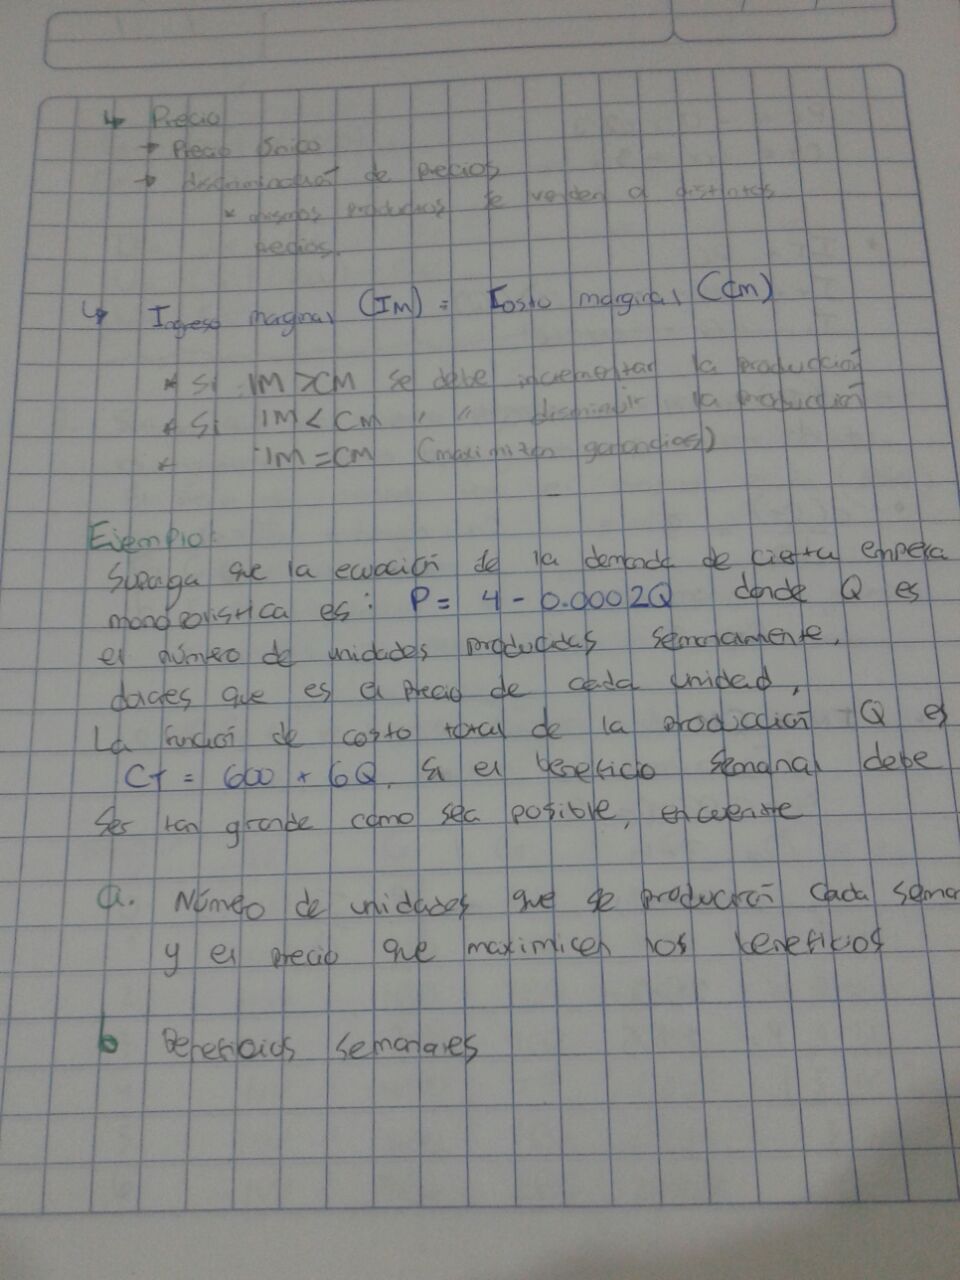 ↳ Precio
→ Precio Único
→ discriminación de precios
* mismos productos se venden a distintos
precios.
↳ Ingreso marginal (IM) = Costo marginal (CM)
* Si IM > CM se debe incrementar la producción
* Si IM < CM " " disminuir la producción
* IM = CM (maximizan ganancias)
Ejemplo:
Suponga que la ecuación de la demanda de cierta empresa
monopolistica es: P = 4 - 0.0002Q donde Q es
el número de unidades producidas semanalmente,
que es el precio de cada unidad,
La función de costo total de la producción Q es
CT = 600 + 6Q. Si el beneficio semanal debe
ser tan grande como sea posible, encuentre
a. Número de unidades que se producirán cada sema
y el precio que maximicen los beneficios
b Beneficios semanales